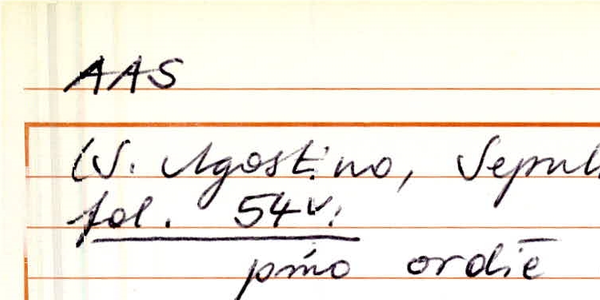 AAS
(S. Agostino, Sepul
fol. 54v.
pm̄o ordiē